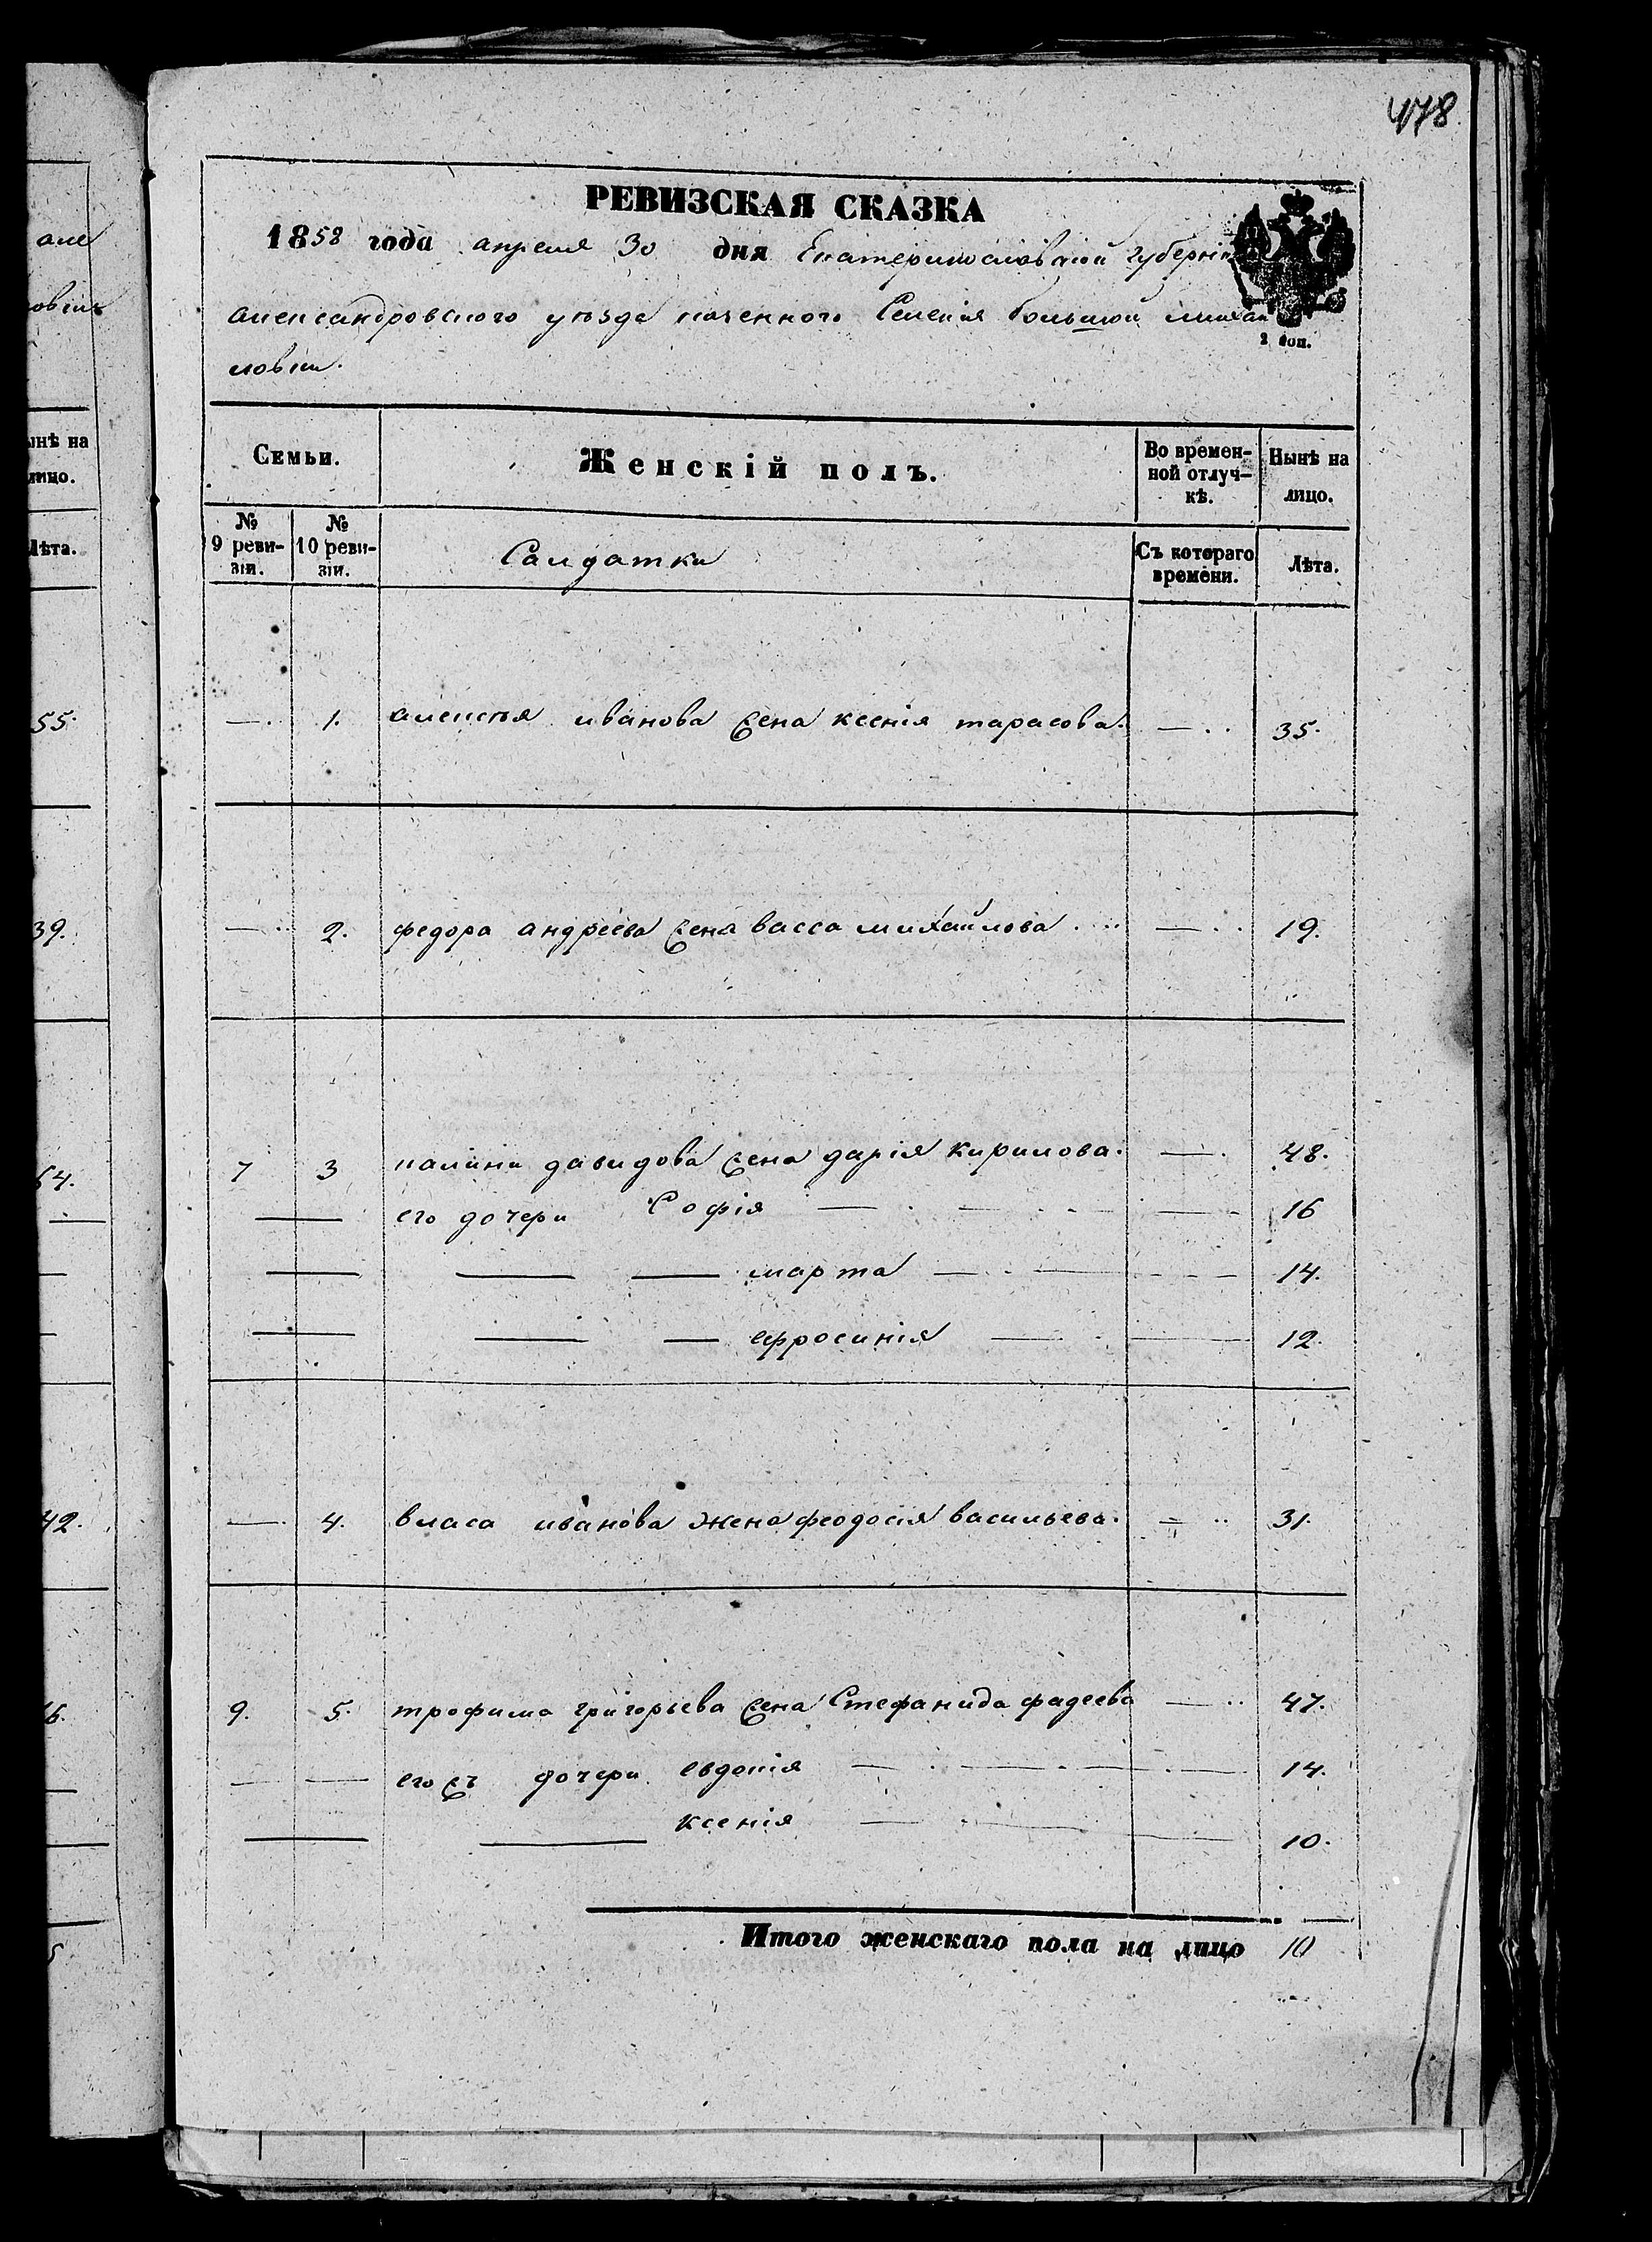 478
але
овки
ынѣ на
лицо.
Лѣта.
55.
39.
64.
42.
16.
5
РЕВИЗСКАЯ СКАЗКА
1858 года апреля 30 дня Екатеринославской губерніи
александровского уѣзда казенного Селенія большой михай
ловки.
2 коп.
Семьи. Женскій полъ. Во времен-
ной отлуч-
кѣ. Нынѣ на
лицо.
№
9 реви-
зіи. №
10 реви-
зіи. Салдатки Съ котораго
времени. Лѣта.
— 1. алексѣя иванова жена ксенія тарасова. — 35.
— 2. федора андреева жена васса михайлова — 19.
7 3 калини давидова жена дарія кирилова. — 48.
— его дочери Софія — — — 16
— — — марта — — — 14.
— — — ефросинія — — 12.
— 4. власа иванова жена феодосія васильева. — 31.
9. 5. трофима григорьева жена Стефанида фадеева — 47.
— — его жъ дочери евдокія — — — — 14.
— — ксенія — — — 10.
Итого женскаго пола на лицо 10